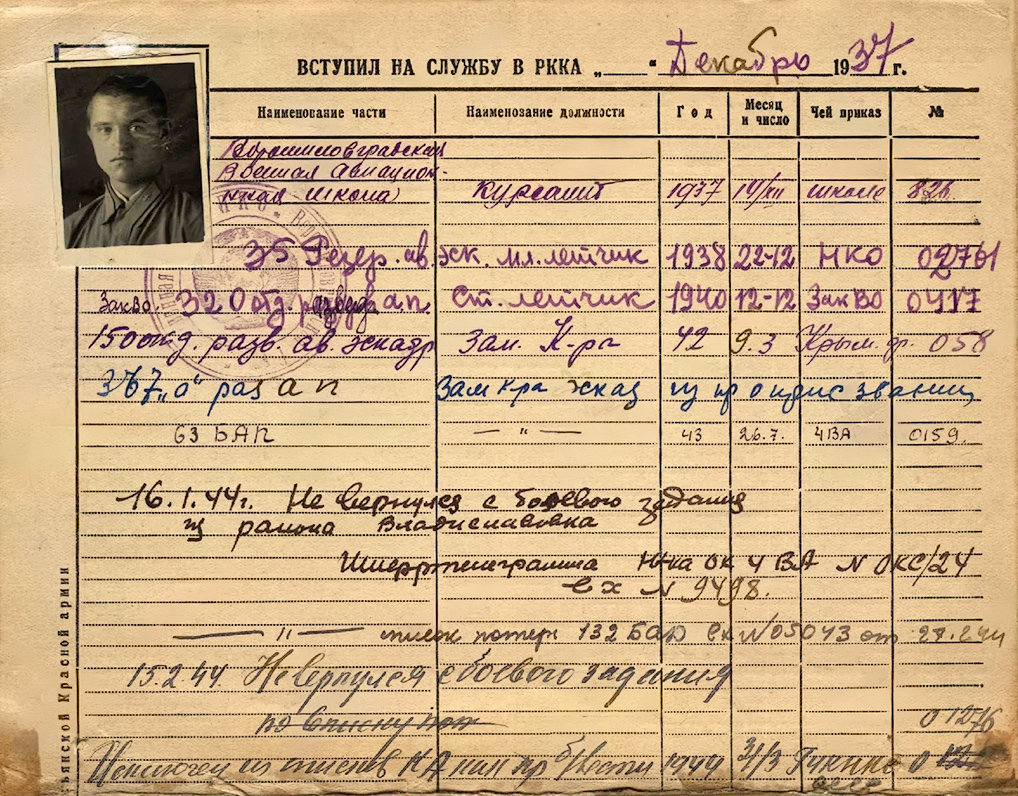 ВСТУПИЛ НА СЛУЖБУ В РККА „ “ Декабрь 1937 г.
Наименование части Наименование должности Год Месяц и число Чей приказ №
Ворошиловградская
Военная Авиацион-
ная школа курсант 1937 14/XII школе 326
35 Резер. ав. эск. мл. летчик 1938 22-12 НКО 02761
ЗакВО. 320 отд. развед а.п. Ст. летчик 1940 12-12 ЗакВО 0417
150 отд. разв. ав. эскадр Зам. К-ра 42 9.3 Крым. фр. 058
367 „а“ раз ап Зам кра эскад из пр о прис звании
63 БАП — „ — 43 26.7. 4ВА 0159.
16.1.44г. Не вернулся с боевого задания
из района Владиславовка
Шифртелеграмма Н-ка ОК 4 ВА N ОКС/24
вх N 9498.
— „ — список потерь 132 БАД вх N 05043 от 28.2.44
15.2.44. Не вернулся с боевого задания
по списку пот
01276
Исключен из списков КА как пр б/вести 1944 31/3 0
ьянской Красной армии